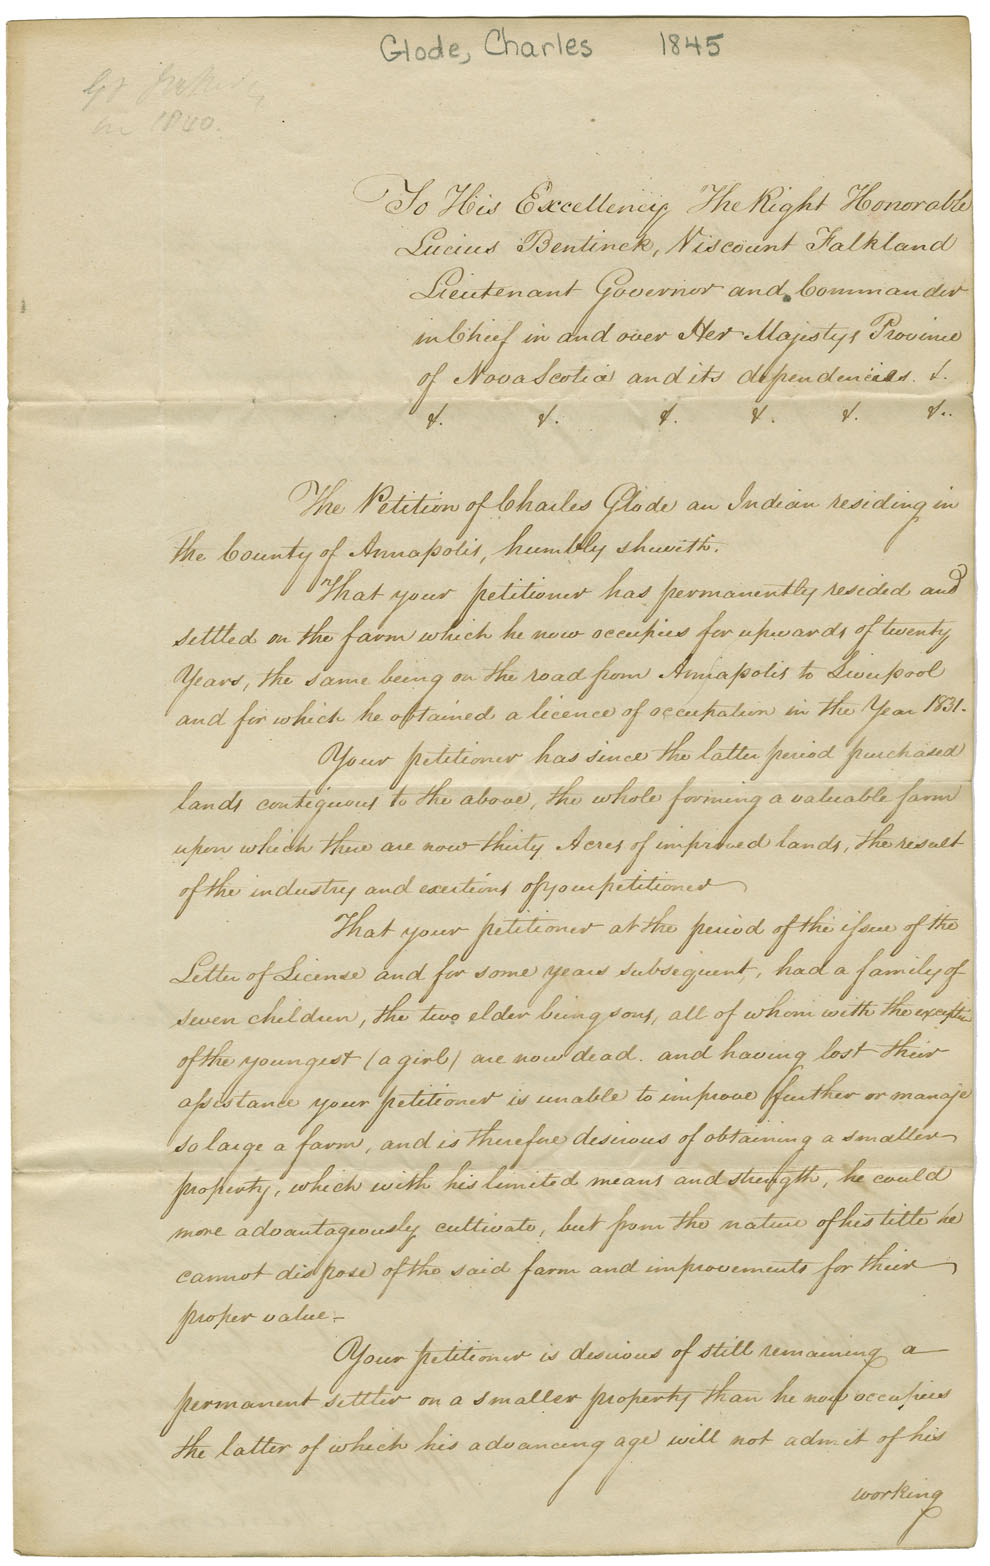 Glode, Charles 1845
Gt
in 1840.
To His Excellency The Right Honorable
Lucius Bentinck, Viscount Falkland
Lieutenant Governor and Commander
in Chief in and over Her Majestys Province
of Nova Scotia and its dependencies. &.
&. &. &. &. &. &.
The Petition of Charles Glode an Indian residing in
the County of Annapolis, humbly sheweth.
That your petitioner has permanently resided and
settled on the farm which he now occupies for upwards of twenty
Years, the same being on the road from Annapolis to Liverpool
and for which he obtained a licence of occupation in the Year 1831.
Your petitioner has since the latter period purchased
lands contiguous to the above, the whole forming a valuable farm
upon which there are now thirty Acres of improved lands, the result
of the industry and exertions of your petitioner
That your petitioner at the period of the issue of the
Letter of License and for some years subsequent, had a family of
seven children, the two elder being sons, all of whom with the exceptn
of the youngest (a girl) are now dead. and having lost their
assistance your petitioner is unable to improve further or manage
so large a farm, and is therefore desirous of obtaining a smaller
property, which with his limited means and strength, he could
more advantageously cultivate, but from the nature of his title he
cannot dispose of the said farm and improvements for their
proper value.-
Your petitioner is desirous of still remaining a
permanent settler on a smaller property than he now occupies
the latter of which his advancing age will not admit of his
working